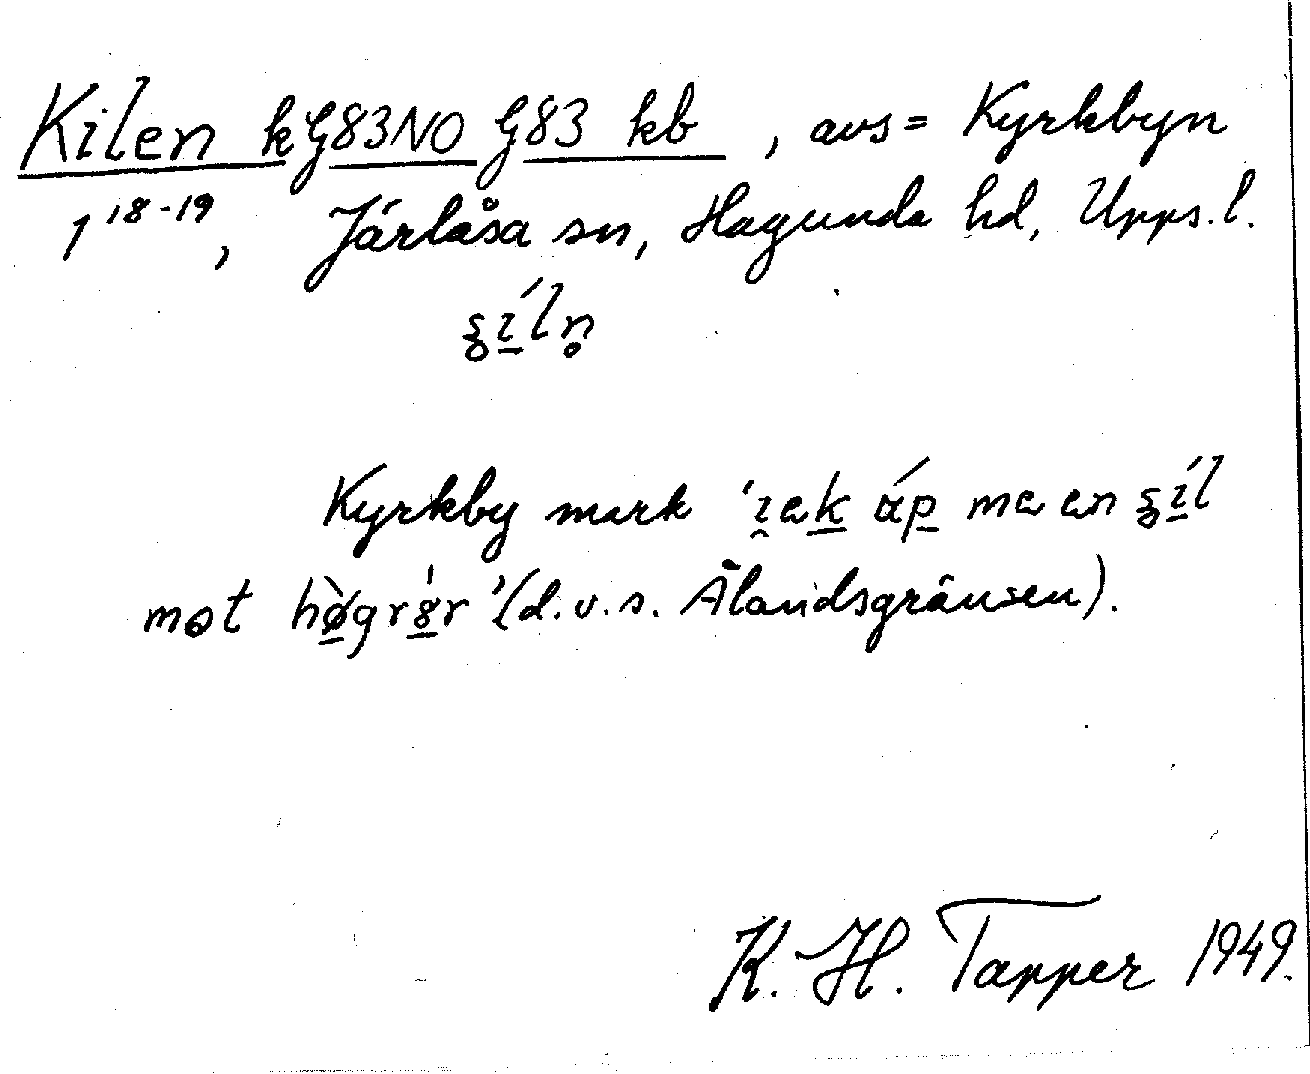 Kilen k G83NO G83 kb, avs = Kyrkbyn
1 18-19, Järlåsa sn, Hagunda hd, Upps.l.
Kyrkby mark me en
mot (d.v.s. Ålandsgränsen).
K. H. Tapper 1949.